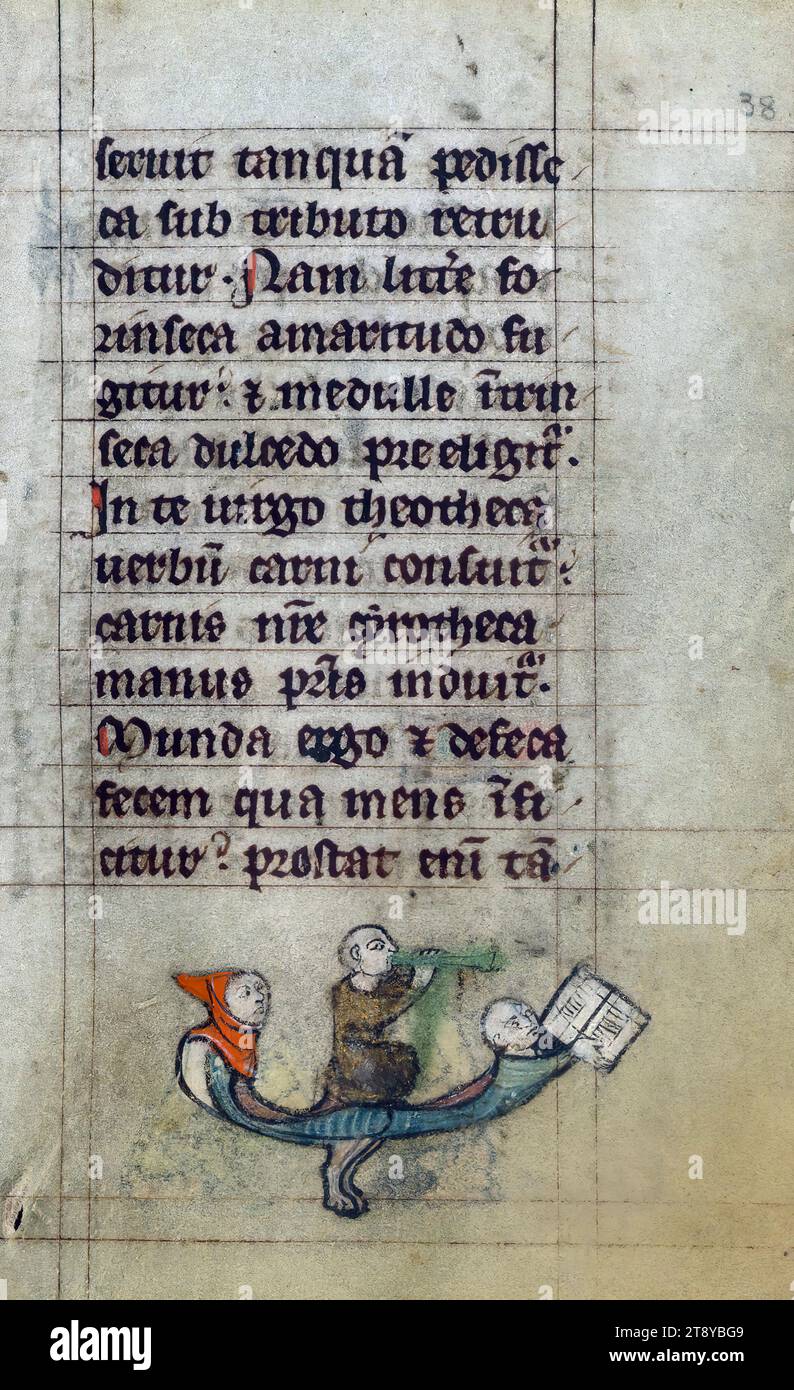 38
seruit tanquā pedisse
ca sub tributo retru
ditur. Nam litt̄e fo
rinseca amaritudo fu
gitur: ⁊ medulle ītrin
seca dulcedo preeligitᷓ.
In te uirgo theotheca
uerbū carni consuitᷓ:
carnis nr̄e cyrotheca
manus pr̄is induitᷓ.
Munda ergo ⁊ defeca
fecem qua mens īfi
citur? prostat enī tā
alamy
Image ID: 2T8YBG9
www.alamy.com